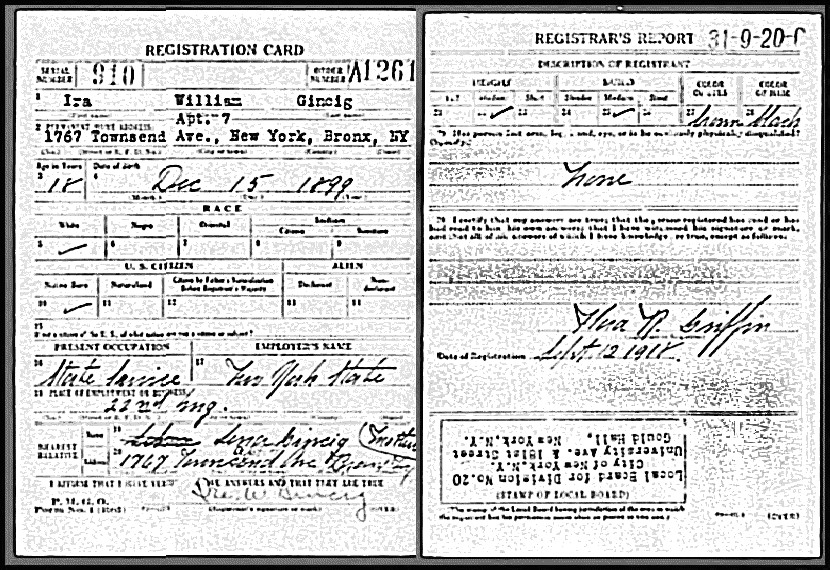 REGISTRATION CARD
SERIAL NUMBER 910 ORDER NUMBER A1261
1 Ira William Gincig
Apt. 7
2 1767 Townsend Ave., New York, Bronx, NY
Age in Years Date of birth
3 18 4 Dec 15 1899
RACE
White Negro Oriental Indian
Citizen
5 6 7 8 9
U. S. CITIZEN ALIEN
Native Born Naturalized Citizen by Father's Naturalization Declarant Non-declarant
10 11 12 13 14
15
PRESENT OCCUPATION EMPLOYER'S NAME
16 State Service 17 New York State
18 PLACE OF EMPLOYMENT OR BUSINESS
22nd
NEAREST RELATIVE Name 19 Lena Gincig (Mother
Address 20 1767 Townsend Ave Bronx NY
I AFFIRM THAT I HAVE VERIFIED ABOVE ANSWERS AND THAT THEY ARE TRUE
P. M. G. O.
Form No. 1 (Red) (Registrant's signature or mark) (OVER)
REGISTRAR'S REPORT 31-9-20-C
DESCRIPTION OF REGISTRANT
HEIGHT BUILD COLOR OF EYES COLOR OF HAIR
Tall Medium Short Slender Medium Stout
21 22 23 24 25 26 27 brown 28 black
29 Has person lost arm, leg, hand, eye, or is he obviously physically disqualified?
(Specify.)
None
30 I certify that my answers are true; that the person registered has read or has
had read to him his own answers; that I have witnessed his signature or mark,
and that all of his answers of which I have knowledge are true, except as follows:
Griffin
Date of Registration Sept. 12 1918
Local Board for Division No.20
City of New York, N.Y.
University Ave. & 181st Street
Gould Hall, New York, N.Y.
(STAMP OF LOCAL BOARD)
(The stamp of the Local Board having jurisdiction of the area in which
the registrant has his permanent home shall be placed in this box.)
(OVER)